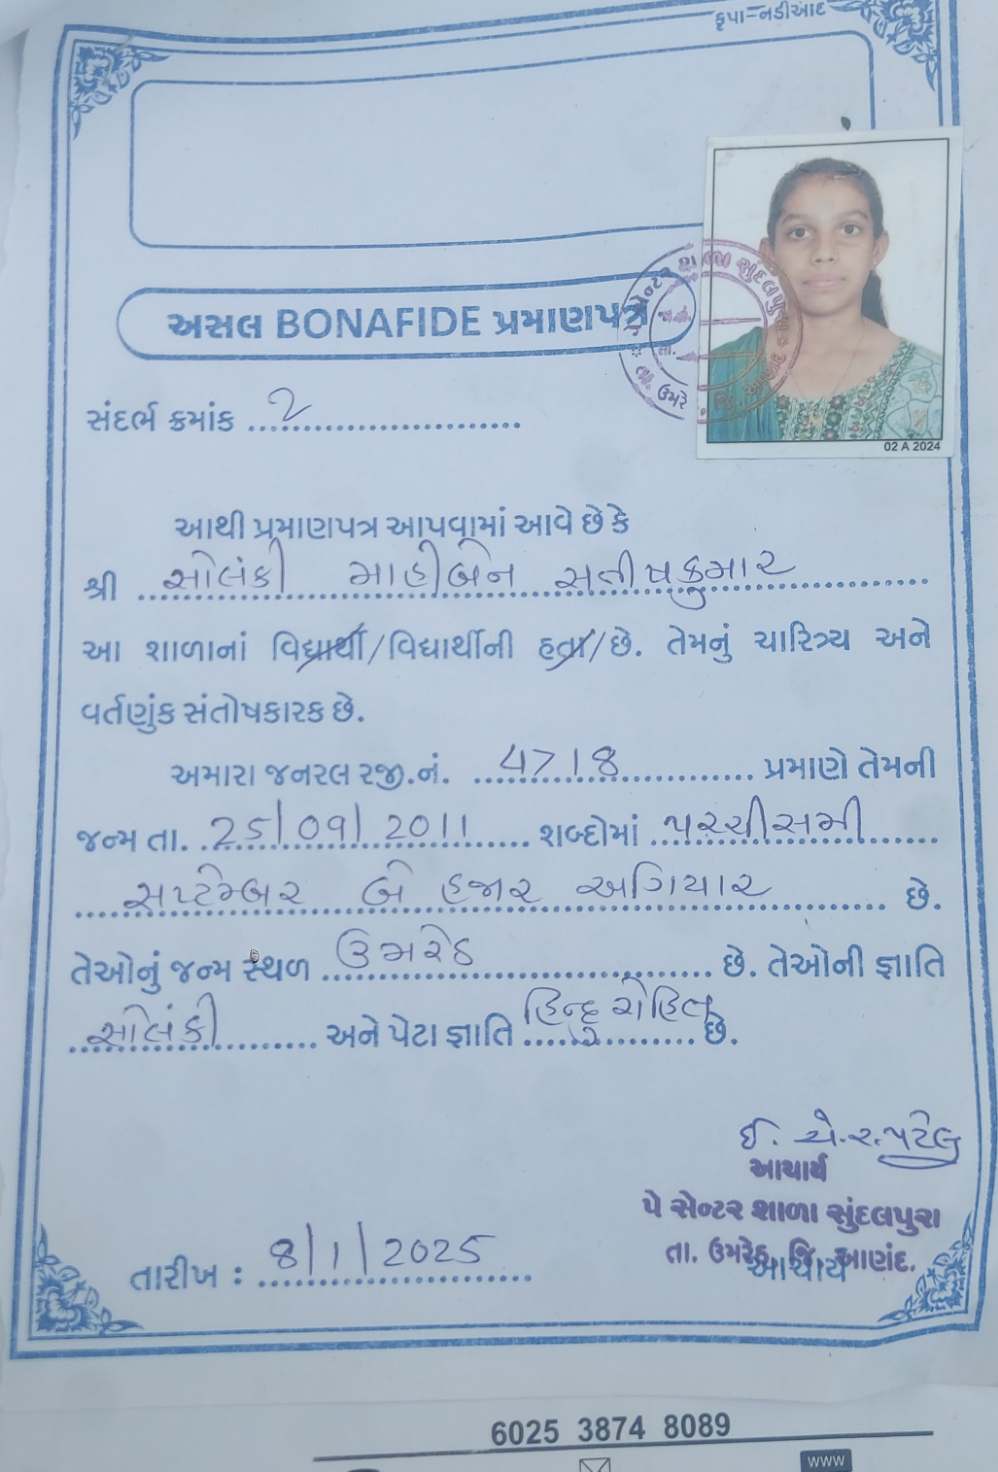 કૃપા-નડીઆદ
અસલ BONAFIDE પ્રમાણપત્ર
02 A 2024
સંદર્ભ ક્રમાંક 2
આથી પ્રમાણપત્ર આપવામાં આવે છે કે
શ્રી સોલંકી માહીબેન સતીષકુમાર
આ શાળાનાં વિદ્યાર્થી/વિદ્યાર્થીની હતા/છે. તેમનું ચારિત્ર્ય અને
વર્તણુંક સંતોષકારક છે.
અમારા જનરલ રજી.નં. 4718 પ્રમાણે તેમની
જન્મ તા. 25/09/2011 શબ્દોમાં પચ્ચીસમી
સપ્ટેમ્બર બે હજાર અગિયાર છે.
તેઓનું જન્મ સ્થળ ઉમરેઠ છે. તેઓની જ્ઞાતિ
સોલંકી અને પેટા જ્ઞાતિ હિન્દુ રોહિત છે.
ઈ. ચે.ર.પટેલ
આચાર્ય
પે સેન્ટર શાળા સુંદલપુરા
તા. ઉમરેઠ, જિ. આણંદ.
આચાર્ય
તારીખ : 8/1/2025
6025 3874 8089
www